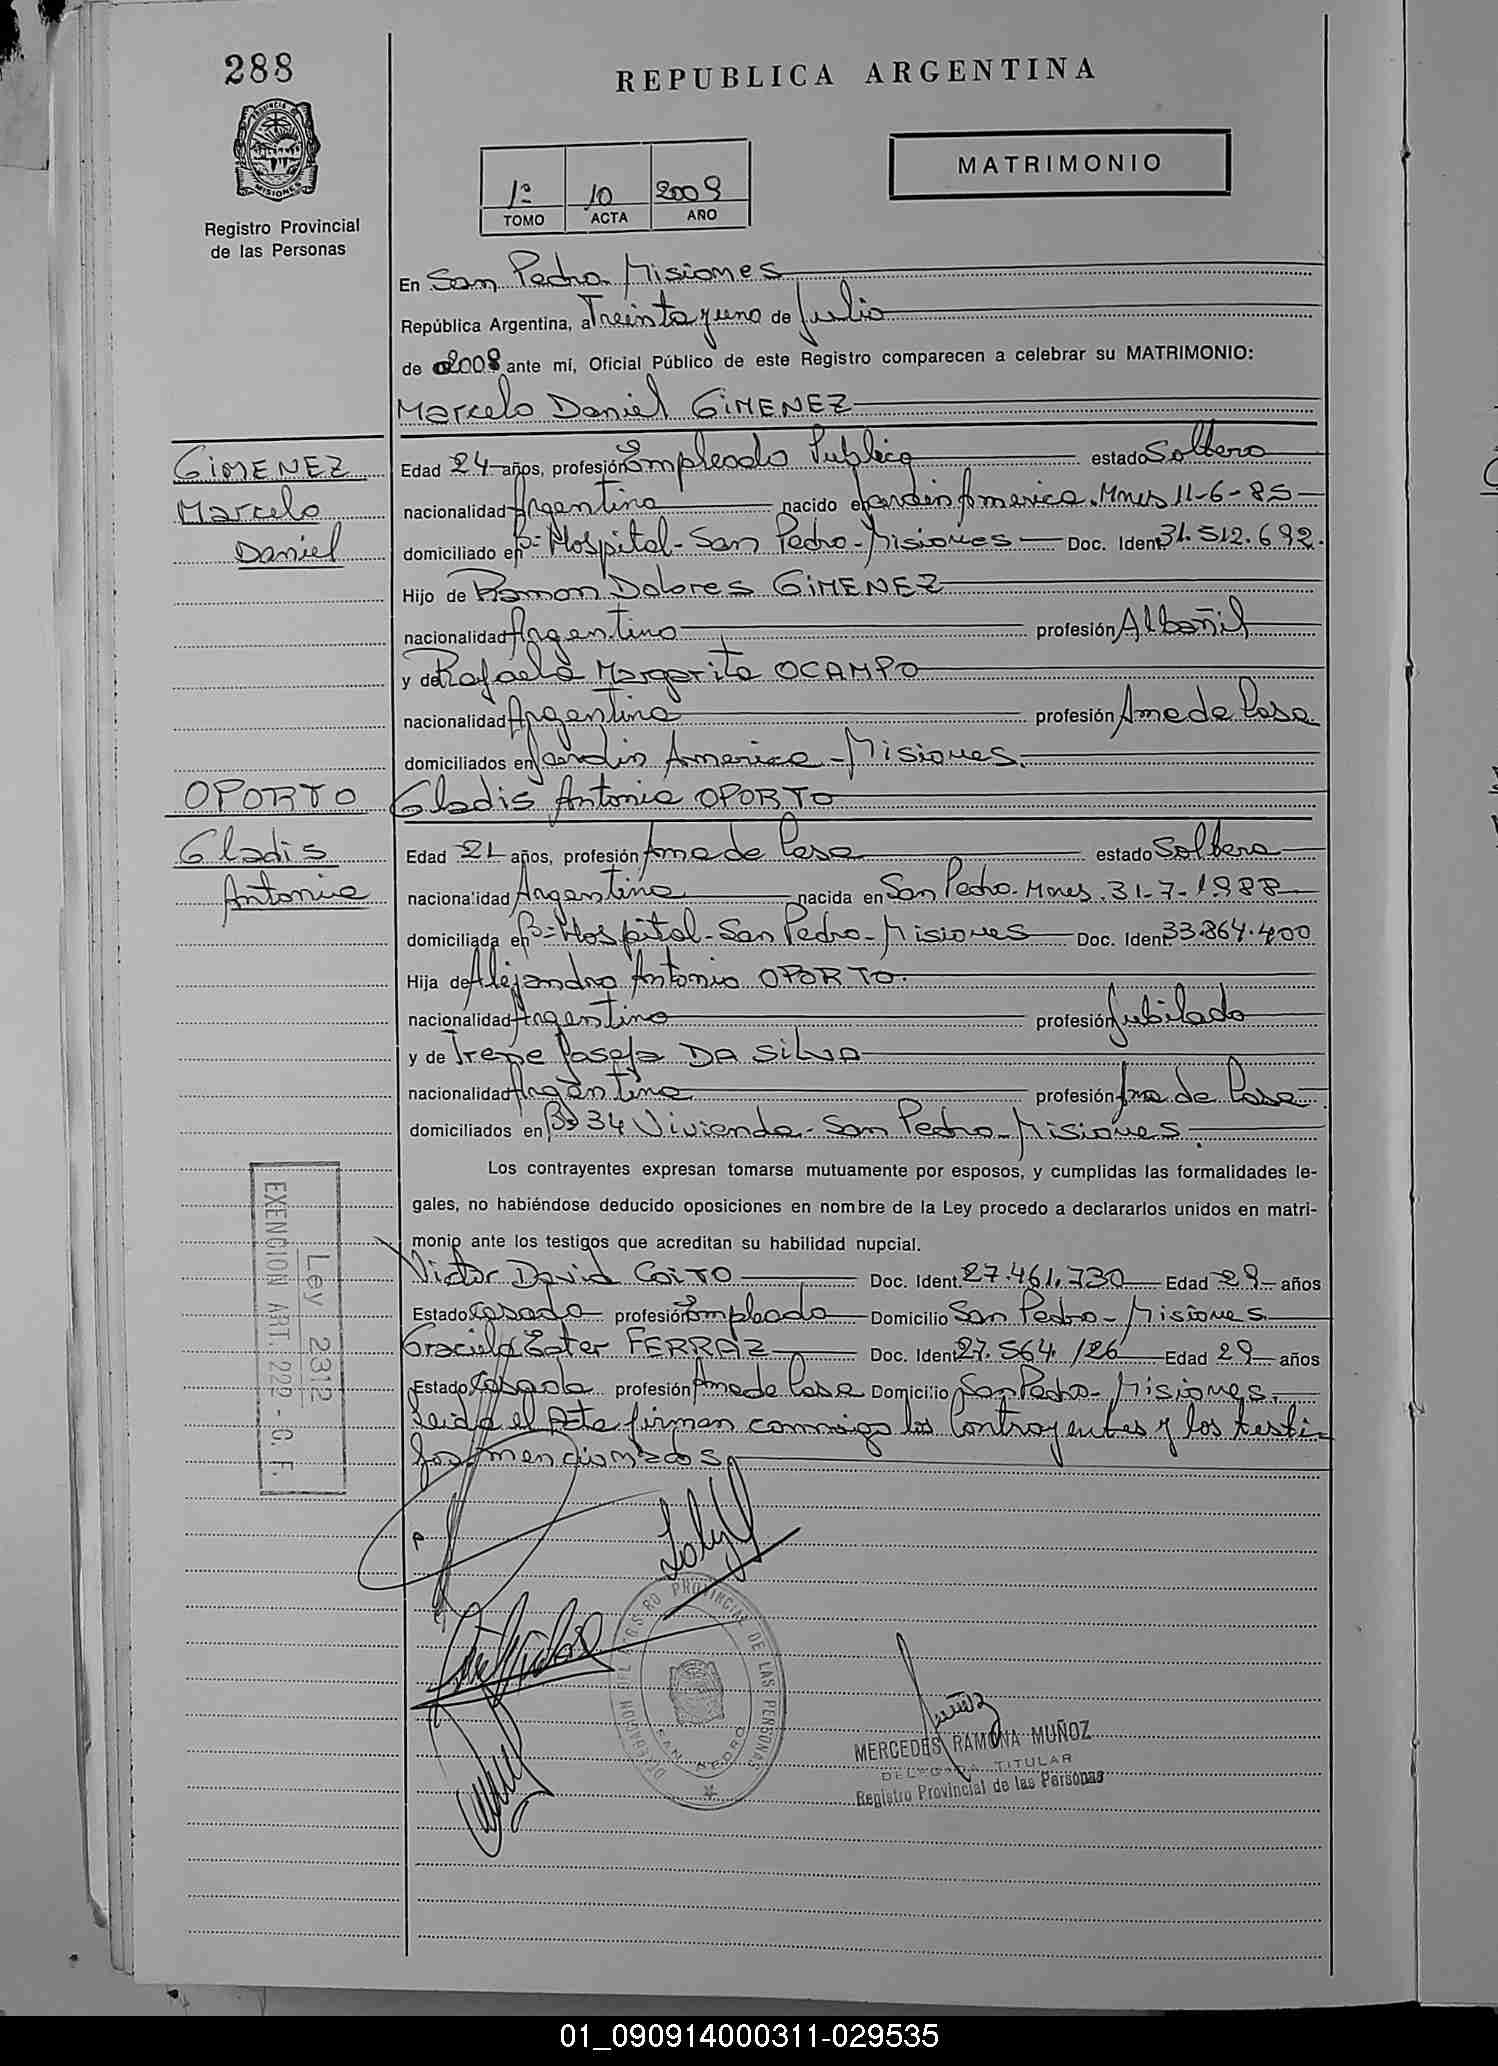 288
REPUBLICA ARGENTINA
PROVINCIA DE
MISIONES
Registro Provincial
de las Personas
1º 10 2009
TOMO ACTA AÑO
MATRIMONIO
En San Pedro Misiones
República Argentina, a Treinta y uno de Julio
de 2009 ante mí, Oficial Público de este Registro comparecen a celebrar su MATRIMONIO:
Marcelo Daniel GIMENEZ
GIMENEZ
Marcelo
Daniel
Edad 24 años, profesión Empleado Publico estado Soltero
nacionalidad Argentino nacido en Jardin America. Mnes 11-6-85
domiciliado en Bº Hospital - San Pedro - Misiones Doc. Ident 31.512.692.
Hijo de Ramon Dolores GIMENEZ
nacionalidad Argentino profesión Albañil
y de Rafaela Margarita OCAMPO
nacionalidad Argentina profesión Ama de Casa
domiciliados en Jardin America - Misiones.
OPORTO
Gladis
Antonia
Gladis Antonia OPORTO
Edad 21 años, profesión Ama de Casa estado Soltera
nacionalidad Argentina nacida en San Pedro - Mnes. 31-7-1988
domiciliada en Bº Hospital - San Pedro - Misiones Doc. Ident 33.864.400
Hija de Alejandro Antonio OPORTO.
nacionalidad Argentino profesión Jubilado
y de Irene DA SILVA
nacionalidad Argentina profesión Ama de Casa
domiciliados en Bº 34 Vivienda - San Pedro - Misiones.
Los contrayentes expresan tomarse mutuamente por esposos, y cumplidas las formalidades le-
gales, no habiéndose deducido oposiciones en nombre de la Ley procedo a declararlos unidos en matri-
monio ante los testigos que acreditan su habilidad nupcial.
Victor David COITO Doc. Ident. 27.461.730 Edad 29 años
Estado Casado profesión Empleado Domicilio San Pedro - Misiones
Graciela Ester FERRAZ Doc. Ident 27.564.126 Edad 29 años
Estado Casada profesión Ama de Casa Domicilio San Pedro - Misiones.
Leida el Acta firman conmigo los Contrayentes y los testi-
gos mencionados.
Ley 2312
EXENCION ART. 229 - C. F.
DELEGACION DEL REGISTRO PROVINCIAL DE LAS PERSONAS
SAN PEDRO
MERCEDES RAMONA MUÑOZ
DELEGADA TITULAR
Registro Provincial de las Personas
01_090914000311-029535